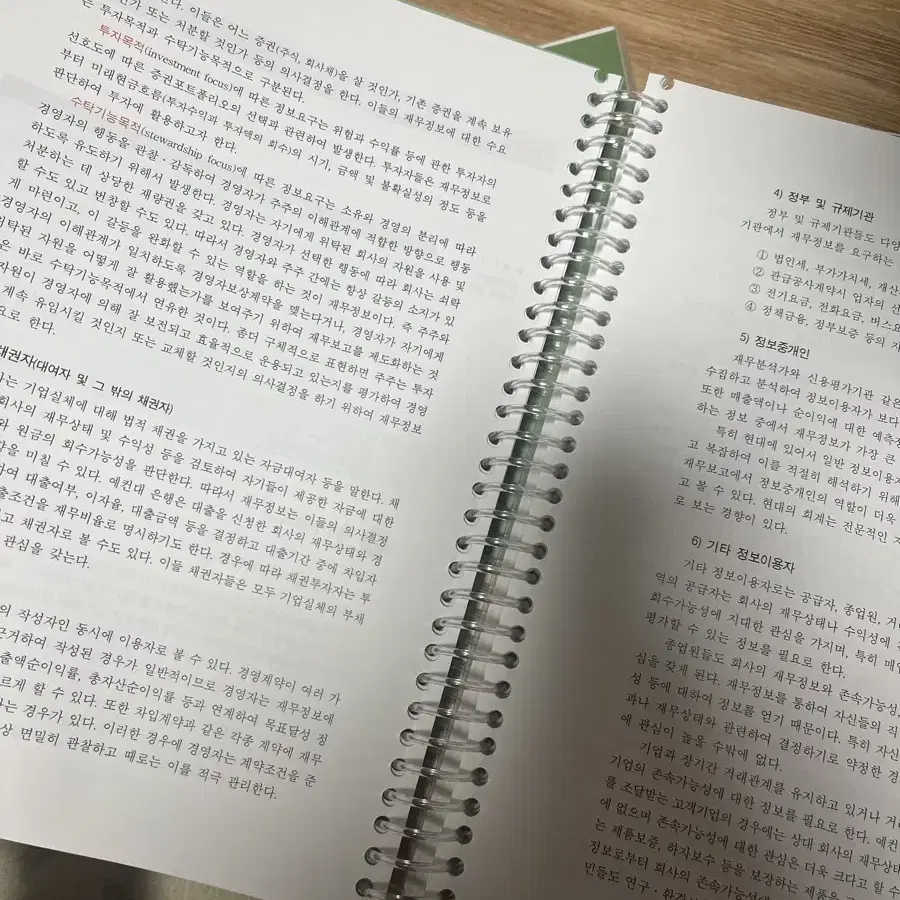 이들은 어느 증권(주식, 회사채)을 살 것인가, 기존 증권을 계속 보유
또는 처분할 것인가 등의 의사결정을 한다. 이들의 재무정보에 대한 수요
는 투자목적과 수탁기능목적으로 구분된다.
투자목적(investment focus)에 따른 정보요구는 위험과 수익률 등에 관한 투자자의
선호도에 따른 증권포트폴리오의 선택과 관련하여 발생한다. 투자자들은 재무정보로
부터 미래현금흐름(투자수익과 투자액의 회수)의 시기, 금액 및 불확실성의 정도 등을
판단하여 투자에 활용하고자 한다.
수탁기능목적(stewardship focus)에 따른 정보요구는 소유와 경영의 분리에 따라
경영자의 행동을 관찰·감독하여 경영자가 주주의 이해관계에 적합한 방향으로 행동
하도록 유도하기 위해서 발생한다. 경영자는 자기에게 위탁된 회사의 자원을 사용 및
처분하는 데 상당한 재량권을 갖고 있다. 경영자가 선택한 행동에 따라 회사는 쇠락
할 수도 있고 번창할 수도 있다. 따라서 경영자와 주주 간에는 항상 갈등의 소지가 있
게 마련이고, 이 갈등을 완화할 수 있는 역할을 하는 것이 재무정보이다. 즉 주주와
경영자의 이해관계가 일치하도록 경영자보상계약을 맺는다거나, 경영자가 자기에게
위탁된 자원을 어떻게 잘 활용했는가를 보여주기 위하여 재무보고를 제도화하는 것
은 바로 수탁기능목적에서 연유한 것이다. 좀더 구체적으로 표현하면 주주는 투자
자원이 경영자에 의해 잘 보전되고 효율적으로 운용되고 있는지를 평가하여 경영
계속 유임시킬 것인지 또는 교체할 것인지의 의사결정을 하기 위하여 재무정보
요로 한다.
채권자(대여자 및 그 밖의 채권자)
자는 기업실체에 대해 법적 채권을 가지고 있는 자금대여자 등을 말한다. 채
회사의 재무상태 및 수익성 등을 검토하여 자기들이 제공한 자금에 대한
와 원금의 회수가능성을 판단한다. 따라서 재무정보는 이들의 의사결정
향을 미칠 수 있다. 예컨대 은행은 대출을 신청한 회사의 재무상태와 경
하여 대출여부, 이자율, 대출금액 등을 결정하고 대출기간 중에 차입자
출조건을 재무비율로 명시하기도 한다. 경우에 따라 채권투자자는 투
고 채권자로 볼 수도 있다. 이들 채권자들은 모두 기업실체의 부채
관심을 갖는다.
의 작성자인 동시에 이용자로 볼 수 있다. 경영계약이 여러 가
근거하여 작성된 경우가 일반적이므로 경영자는 재무정보에
출액순이익률, 총자산순이익률 등과 연계하여 목표달성 정
르게 할 수 있다. 또한 차입계약과 같은 각종 계약에 재무
는 경우가 있다. 이러한 경우에 경영자는 계약조건을 준
상 면밀히 관찰하고 때로는 이를 적극 관리한다.
4) 정부 및 규제기관
정부 및 규제기관들도 다양
기관에서 재무정보를 요구하는
① 법인세, 부가가치세, 재산
② 관급공사계약시 업자의 선
③ 전기요금, 전화요금, 버스요
④ 정책금융, 정부보증 등의 지
5) 정보중개인
재무분석가와 신용평가기관 같은
수집하고 분석하여 정보이용자가 보다
또한 매출액이나 순이익에 대한 예측정
하는 정보 중에서 재무정보가 가장 큰
특히 현대에 있어서 일반 정보이용자
고 복잡하여 이를 적절히 해석하기 위해
재무보고에서 정보중개인의 역할이 더욱
고 볼 수 있다. 현대의 회계는 전문적인 지
로 보는 경향이 있다.
6) 기타 정보이용자
기타 정보이용자로는 공급자, 종업원, 거래
역의 공급자는 회사의 재무상태나 수익성에
회수가능성에 지대한 관심을 가지며, 특히 매입
평가할 수 있는 정보를 필요로 한다.
종업원들도 회사의 재무정보와 존속가능성,
심을 갖게 된다. 재무정보를 통하여 자신들의 직
성 등에 대하여 정보를 얻기 때문이다. 특히 자신
과나 재무상태와 관련하여 결정하기로 약정한 경
에 관심이 높을 수밖에 없다.
기업과 장기간 거래관계를 유지하고 있거나 거래
기업의 존속가능성에 대한 정보를 필요로 한다. 예컨
를 조달받는 고객기업의 경우에는 상대 회사의 재무상태
에 없으며 존속가능성에 대한 관심은 더욱 크다고 할 수
는 제품보증, 하자보수 등을 보장하는 제품을
정보로부터 회사의 존속가능성에
민들도 연구·환경